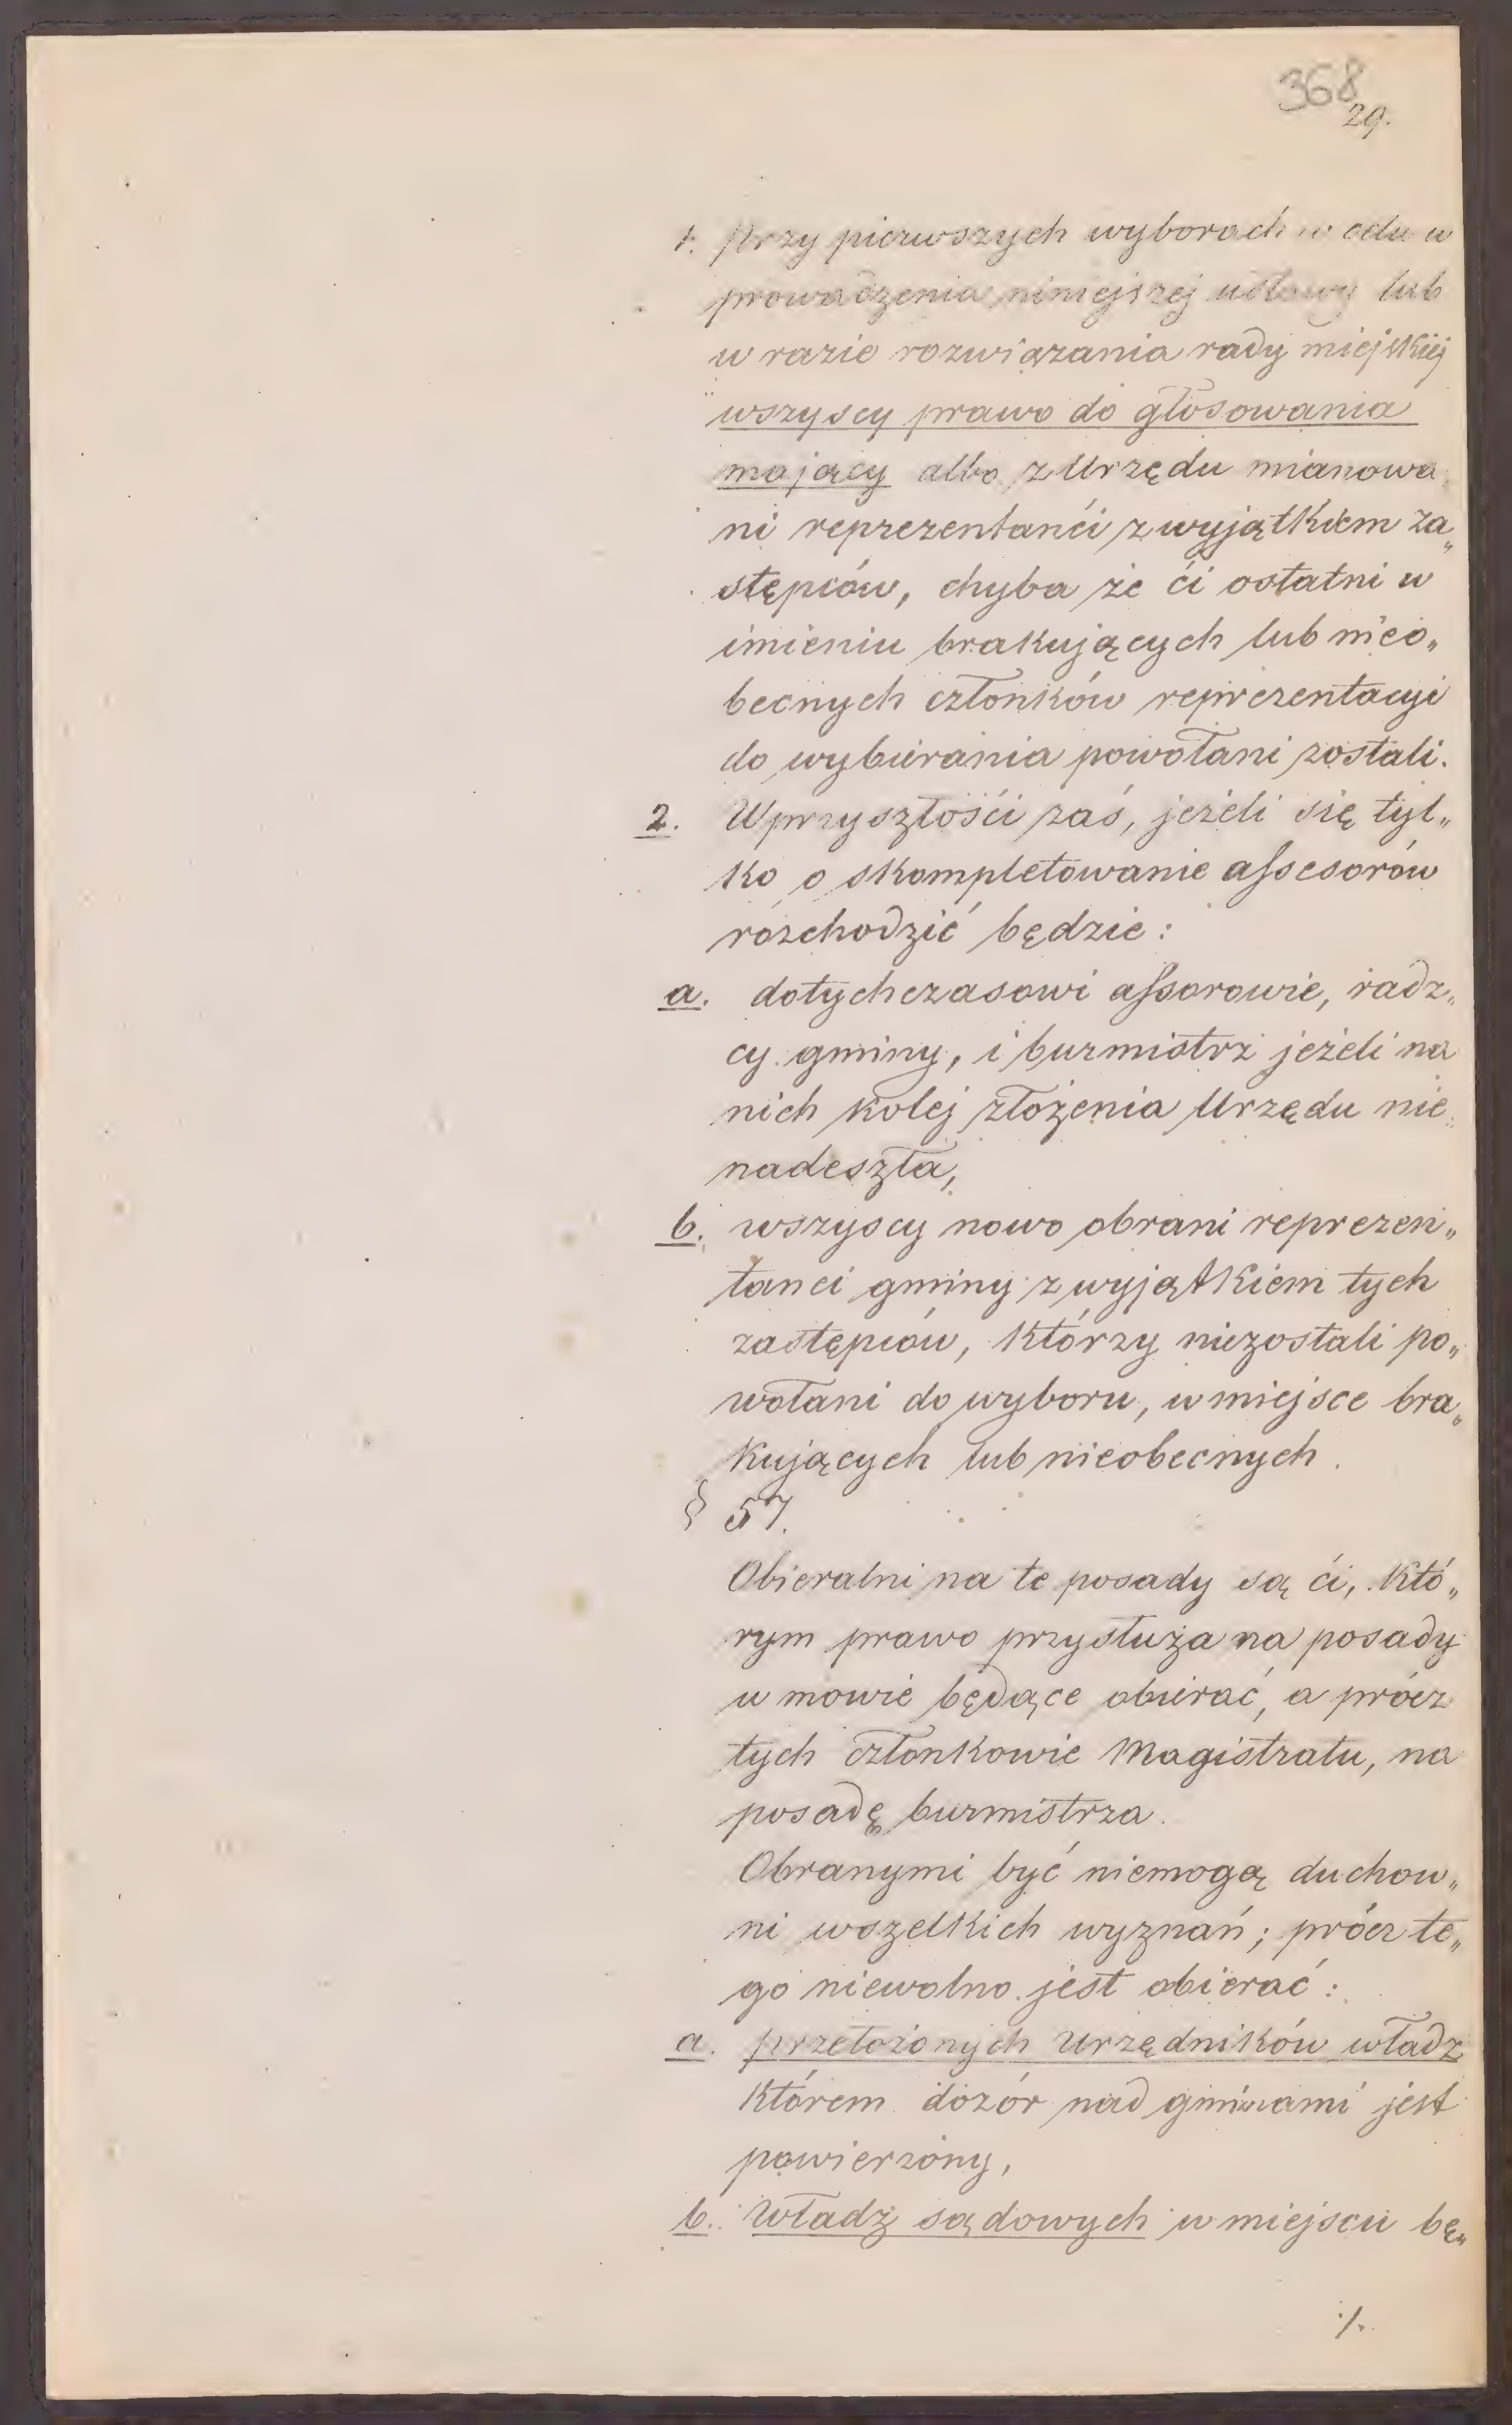 368
29.
1. Przy pierwszych wyborach w celu w
prowadzenia niniejszej ustawy lub
w razie rozwiązania rady miejskiej
wszyscy prawo do głosowania
mający albo z Urzędu mianowa„
ni reprezentanći z wyjątkiem za„
stępców, chyba że ći ostatni w
imieniu brakujących lub nieo„
becnych członków reprezentacyi
do wybierania powołani zostali.
2. W przyszłośći zaś, jeżeli się tyl„
ko o skompletowanie assesorów
rozchodzić będzie:
a. dotychczasowi assorowie, radz„
cy gminy, i burmistrz jeżeli na
nich kolej złożenia Urzędu nie„
nadeszła,
b. wszyscy nowo obrani reprezen„
tanci gminy z wyjątkiem tych
zastępców, którzy niezostali po„
wołani do wyboru, w miejsce bra„
kujących lub nieobecnych.
§ 57.
Obieralni na te posady są ći, któ„
rym prawo przysłuża na posady
w mowie będące obierać, a prócz
tych członkowie Magistratu, na
posadę burmistrza.
Obranymi być niemogą duchow„
ni wszelkich wyznań; prócz te„
go niewolno jest obierać:
a. przełożonych urzędników władz
którem dozór nad gminami jest
powierzony,
b. Władz sądowych w miejscu bę„
./.